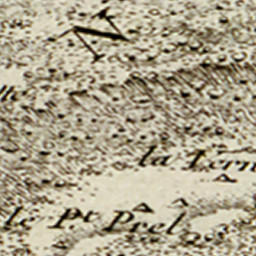 N
lle
la Tern
le pt Prel